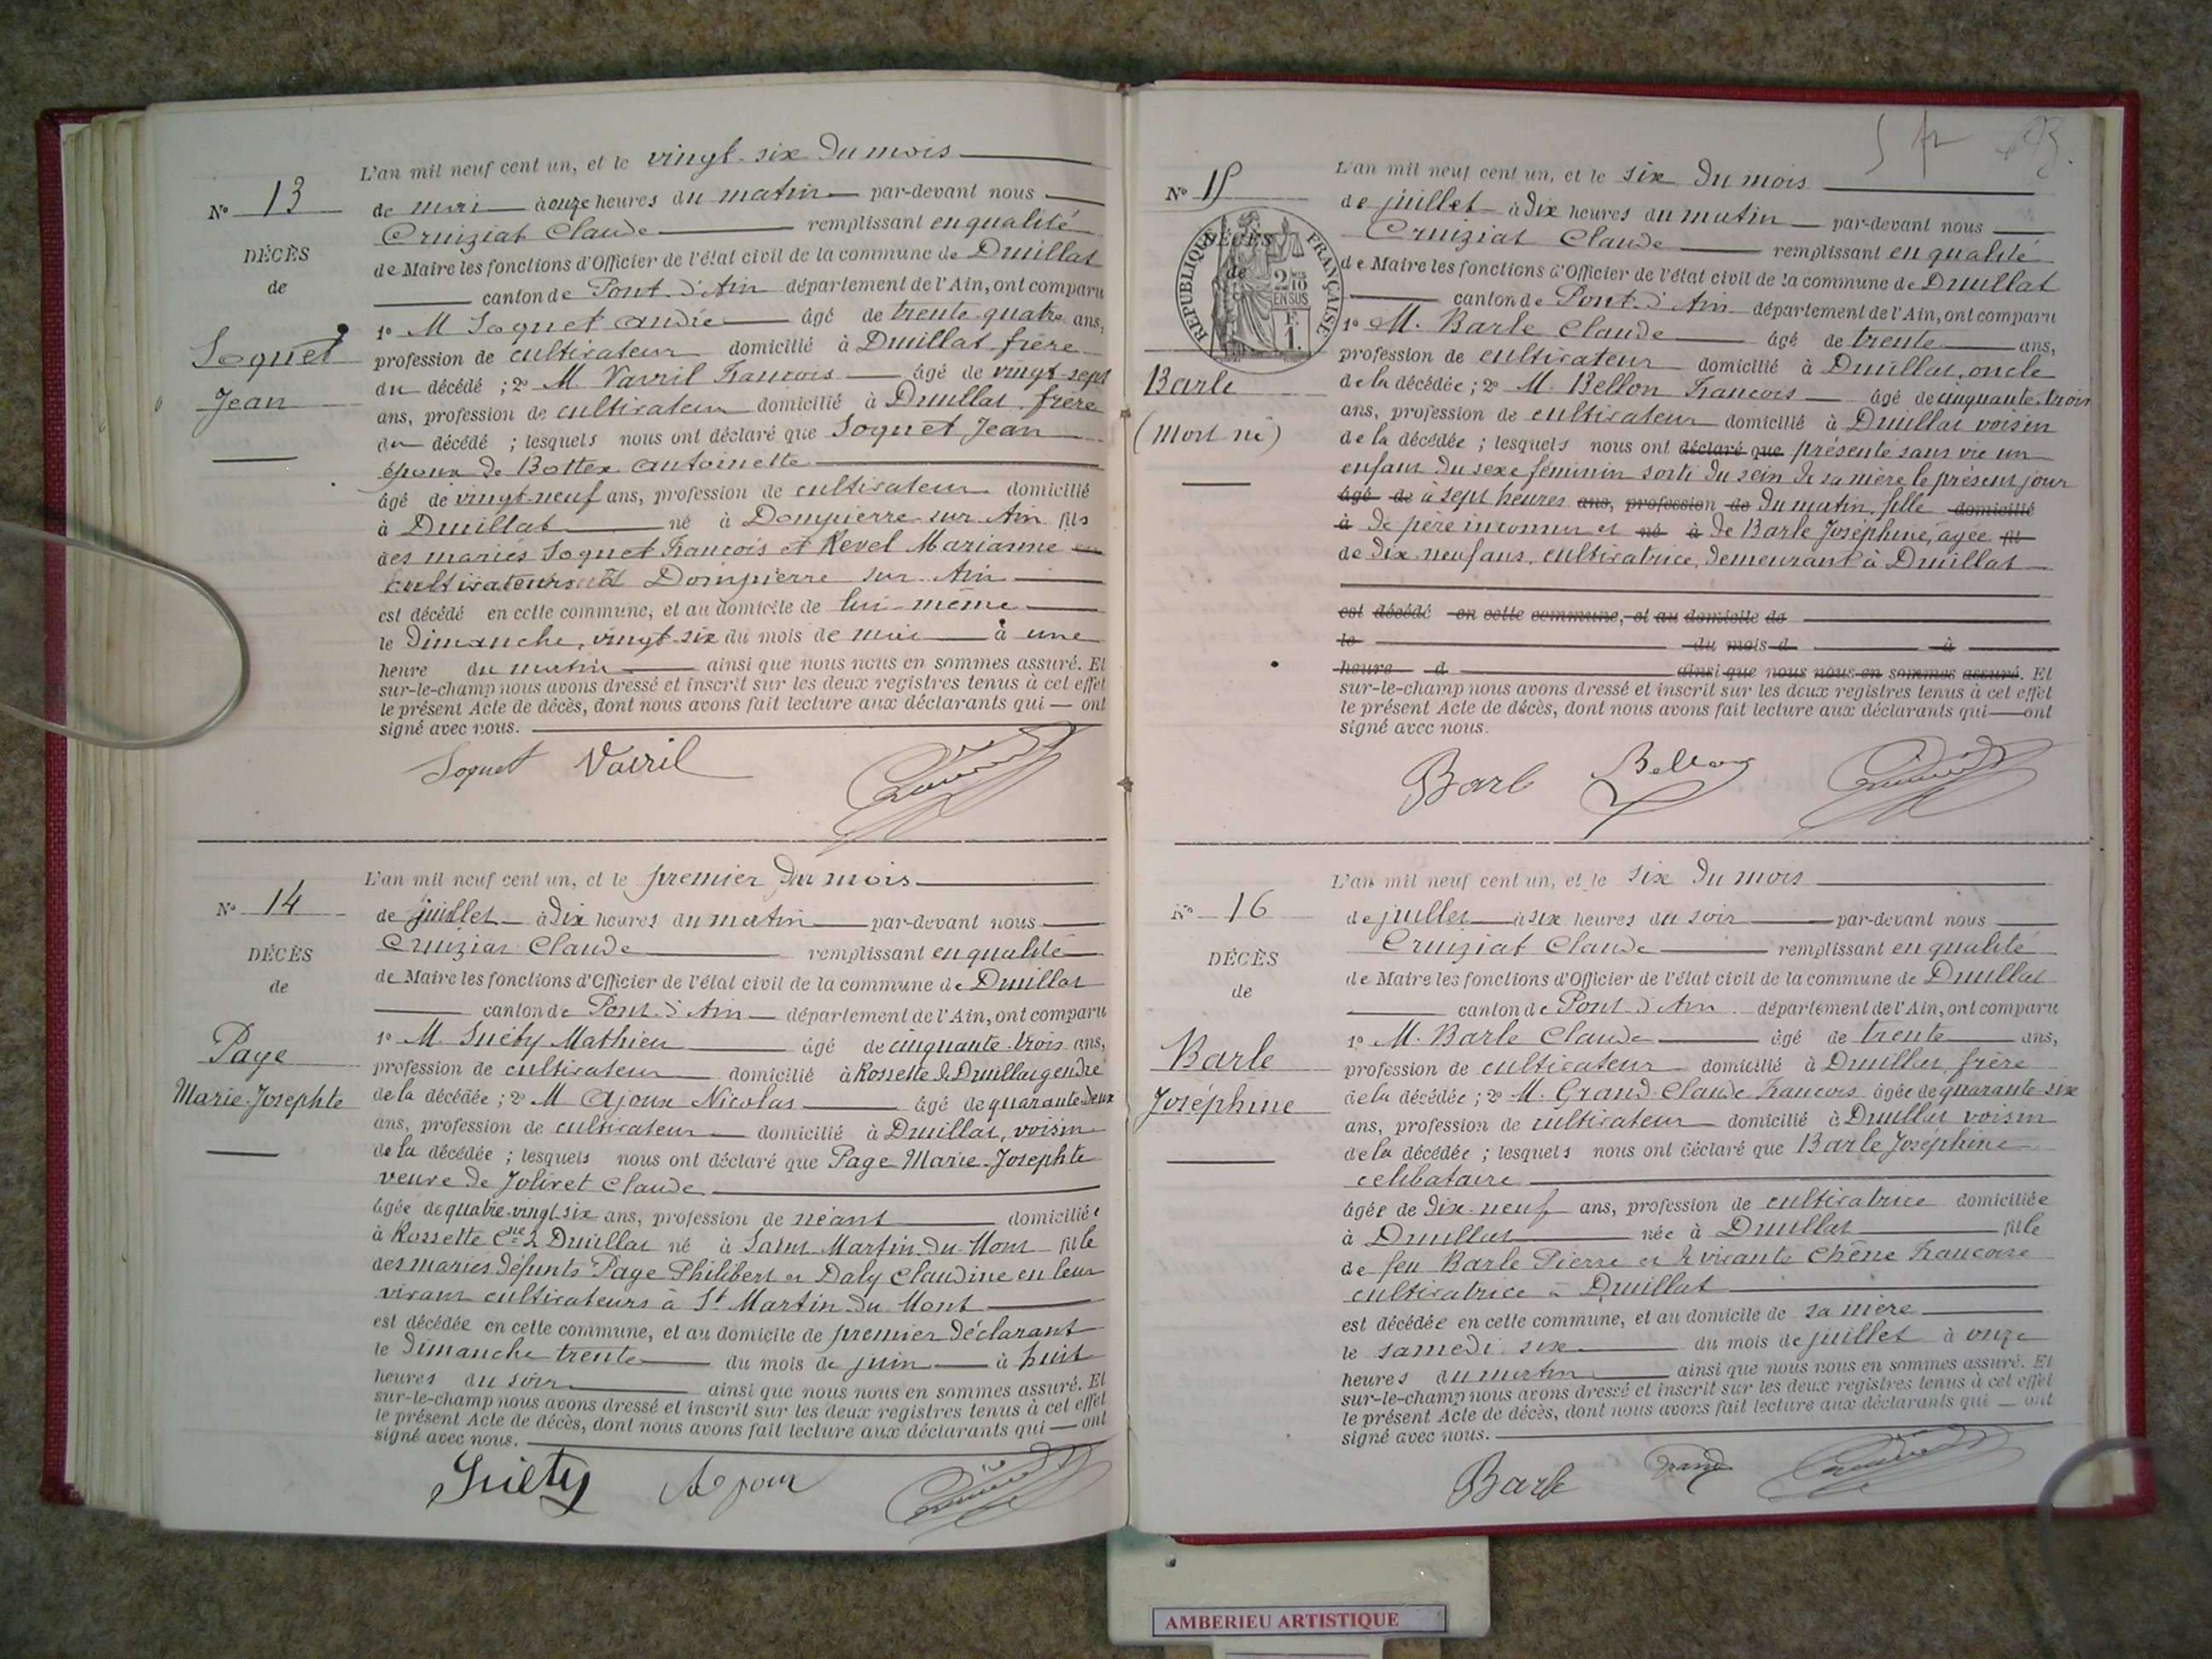 L'an mil neuf cent un, et le vingt-six du mois
N° 13
de mai à onze heures du matin par-devant nous
Cruiziat Claude remplissant en qualité
DÉCÈS
de Maire les fonctions d'Officier de l'état civil de la commune de Druillat
de
canton de Pont-d'Ain département de l'Ain, ont comparu
1° M Soquet André âgé de trente-quatre ans,
Soquet
profession de cultivateur domicilié à Druillat frère
du décédé ; 2° M. Vavril François âgé de vingt-sept
Jean
ans, profession de cultivateur domicilié à Druillat, frère
du décédé ; lesquels nous ont déclaré que Soquet Jean
époux de Bottex Antoinette
âgé de vingt-neuf ans, profession de cultivateur domicilié
à Druillat né à Dompierre sur Ain fils
des mariés Soquet François et Revel Marianne
cultivateurs à Dompierre sur Ain
est décédé en cette commune, et au domicile de lui-même
le Dimanche, vingt-six du mois de mai à une
heure du matin ainsi que nous nous en sommes assuré. Et
sur-le-champ nous avons dressé et inscrit sur les deux registres tenus à cet effet
le présent Acte de décès, dont nous avons fait lecture aux déclarants qui ont
signé avec nous.
Soquet Vavril
L'an mil neuf cent un, et le premier du mois
N° 14
de juillet à dix heures du matin par-devant nous
Cruiziat Claude remplissant en qualité
DÉCÈS
de Maire les fonctions d'Officier de l'état civil de la commune de Druillat
de
canton de Pont-d'Ain département de l'Ain, ont comparu
1° M. Suéty Mathieu âgé de cinquante-trois ans,
Page
profession de cultivateur domicilié à Rossette de Druillat gendre
Marie-Josephte
de la décédée ; 2° M Ajoux Nicolas âgé de quarante-deux
ans, profession de cultivateur domicilié à Druillat, voisin
de la décédée ; lesquels nous ont déclaré que Page Marie-Josephte
veuve de Jolivet Claude
âgée de quatre-vingt-six ans, profession de néant domiciliée
à Rossette Cne de Druillat né à Saint-Martin-du-Mont fille
des mariés défunts Page Philibert et Daly Claudine en leur
vivant cultivateurs à St Martin-du-Mont
est décédée en cette commune, et au domicile de premier déclarant
le Dimanche trente du mois de juin à huit
heures du soir ainsi que nous nous en sommes assuré. Et
sur-le-champ nous avons dressé et inscrit sur les deux registres tenus à cet effet
le présent Acte de décès, dont nous avons fait lecture aux déclarants qui ont
signé avec nous.
Suéty Ajoux
5 fr
L'an mil neuf cent un, et le six du mois
N° 15
de juillet à dix heures du matin par-devant nous
Cruiziat Claude remplissant en qualité
DÉCÈS
RÉPUBLIQUE FRANÇAISE
de Maire les fonctions d'Officier de l'état civil de la commune de Druillat
de
2/10 EN SUS
canton de Pont-d'Ain département de l'Ain, ont comparu
F. 1.
1° M. Barle Claude âgé de trente ans,
profession de cultivateur domicilié à Druillat, oncle
Barle
de la décédée ; 2° M. Bellon François âgé de cinquante-trois
ans, profession de cultivateur domicilié à Druillat voisin
(Mort né)
de la décédée ; lesquels nous ont déclaré que présenté sans vie un
enfant du sexe féminin sorti du sein de sa mère le présent jour
âgé de à sept heures ans, profession de du matin, fille domicilié
à de père inconnu et né à de Barle Joséphine, âgée fil
de dix-neuf ans, cultivatrice, demeurant à Druillat
est décédé en cette commune, et au domicile de
le du mois d à
heure d ainsi que nous nous en sommes assuré. Et
sur-le-champ nous avons dressé et inscrit sur les deux registres tenus à cet effet
le présent Acte de décès, dont nous avons fait lecture aux déclarants qui ont
signé avec nous.
Barle Bellon
L'an mil neuf cent un, et le six du mois
N° 16
de juillet à six heures du soir par-devant nous
Cruiziat Claude remplissant en qualité
DÉCÈS
de Maire les fonctions d'Officier de l'état civil de la commune de Druillat
de
canton de Pont-d'Ain département de l'Ain, ont comparu
1° M. Barle Claude âgé de trente ans,
Barle
profession de cultivateur domicilié à Druillat, frère
Joséphine
de la décédée ; 2° M. Grand Claude François âgée de quarante-six
ans, profession de cultivateur domicilié à Druillat voisin
de la décédée ; lesquels nous ont déclaré que Barle Joséphine
célibataire
âgée de dix-neuf ans, profession de cultivatrice domiciliée
à Druillat née à Druillat fille
de feu Barle Pierre et de vivante Chêne Françoise
cultivatrice à Druillat
est décédée en cette commune, et au domicile de sa mère
le samedi six du mois de juillet à onze
heures du matin ainsi que nous nous en sommes assuré. Et
sur-le-champ nous avons dressé et inscrit sur les deux registres tenus à cet effet
le présent Acte de décès, dont nous avons fait lecture aux déclarants qui ont
signé avec nous.
Barle Grand
AMBERIEU ARTISTIQUE